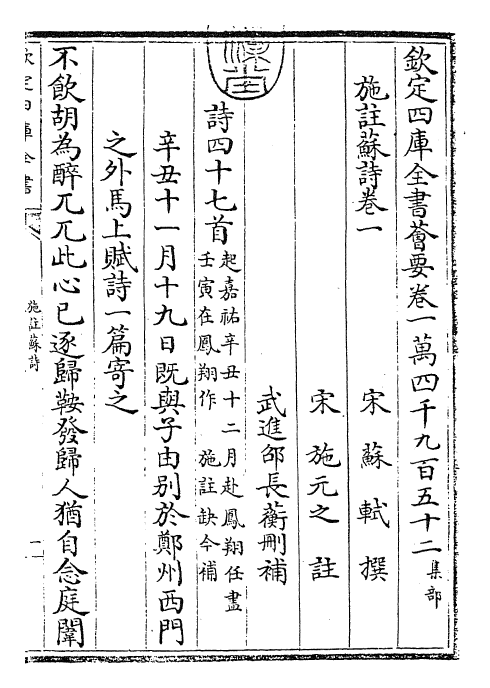 欽定四庫全書薈要卷一萬四千九百五十二 集部
施註蘇詩卷一
宋 蘇 軾 撰
宋 施元之 註
武進邵長蘅刪補
詩四十七首 起嘉祐辛丑十二月赴鳳翔任盡
壬寅在鳳翔作 施註缺今補
辛丑十一月十九日既與子由别於鄭州西門
之外馬上賦詩一篇寄之
不飲胡為醉兀兀此心已逐歸鞍發歸人猶自念庭闈
欽定四庫全書
施註蘇詩
一